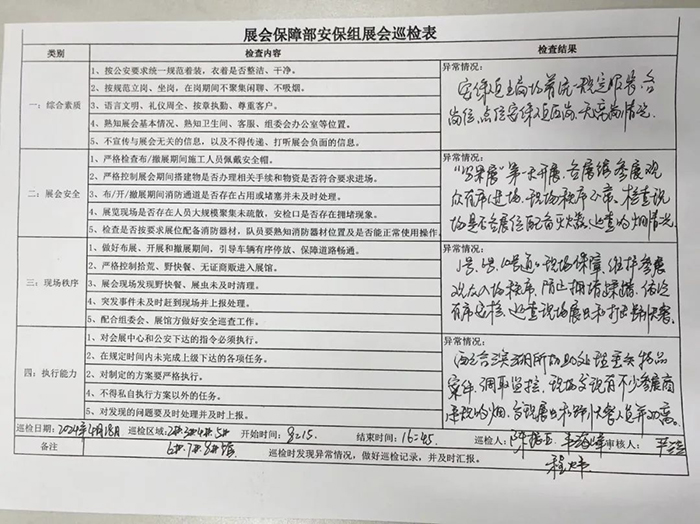 展会保障部安保组展会巡检表
类别 检查内容 检查结果
一：综合素质
1、按公安要求统一规范着装，衣着是否整洁、干净。
2、按规范立岗、坐岗，在岗期间不聚集闲聊、不吸烟。
3、语言文明、礼仪周全、按章执勤、尊重客户。
4、熟知展会基本情况，熟知卫生间、客服、组委会办公室等位置。
5、不宣传与展会无关的信息，以及不得传递、打听展会负面的信息。
异常情况：
安保人员上岗均着统一规定服装，各
岗位、点位安保人员在岗，无离岗情况。
二：展会安全
1、严格检查布/撤展期间施工人员佩戴安全帽。
2、严格控制展会期间搭建物是否办理相关手续和物资是否符合要求进场。
3、布/开/撤展期间消防通道是否存在占用或堵塞并未及时处理。
4、展览现场是否存在人员大规模聚集未疏散，安检口是否存在拥堵现象。
5、检查是否按要求展位配备消防器材，队员要熟知消防器材位置及是否能正常使用操作。
异常情况：
第一天开展，各展馆参展观
众有序进场，现场秩序正常。检查现
场是否各展位配备灭火器，巡查吸烟情况。
三：现场秩序
1、做好布展、开展和撤展期间，引导车辆有序停放、保障道路畅通。
2、严格控制拾荒、野快餐、无证商贩进入展馆。
3、展会现场发现野快餐，展虫未及时清理。
4、突发事件未及时赶到现场并上报处理。
5、配合组委会、展馆方做好安全巡查工作。
异常情况：
现场保障，维持参展
观众入场秩序，防止拥堵踩踏，依次
有序安检，巡查现场展虫和打野快餐。
四：执行能力
1、对会展中心和公安下达的指令必须执行。
2、在规定时间内未完成上级下达的各项任务。
3、对制定的方案要严格执行。
4、不得私自执行方案以外的任务。
5、对发现的问题要及时处理并及时上报。
异常情况：
派出所协助处理丢失物品
案件，调取监控，现场发现有不少参展商
违规吸烟，发现展虫和野快餐人员并劝离。
巡检日期：2024年4月18日 巡检区域：2#3#4#5# 开始时间：8:15 结束时间：16:45 巡检人： 审核人：
6#7#8#馆
备注 巡检时发现异常情况，做好巡检记录，并及时汇报。